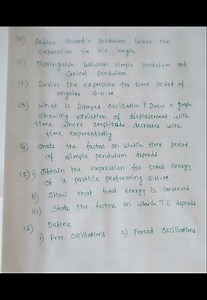 10) Define Second's pendulum. Derive the
expression for its length
11) Distinguish between simple pendulum and
Conical Pendulum
12) Derive the expression for time period of
angular S.H.M
13) What is Damped Oscillation? Draw a graph
showing variation of displacement with
time where amplitude decreases with
time exponentially
14) State the factors on which time period
of simple pendulum depends
15) i) Obtain the expression for total energy
of a particle preforming S.H.M
ii) Show that total energy is conserved.
iii) State the factors on which T.E depends
16) Define
1) Free Oscillations 2) Forced Oscillations